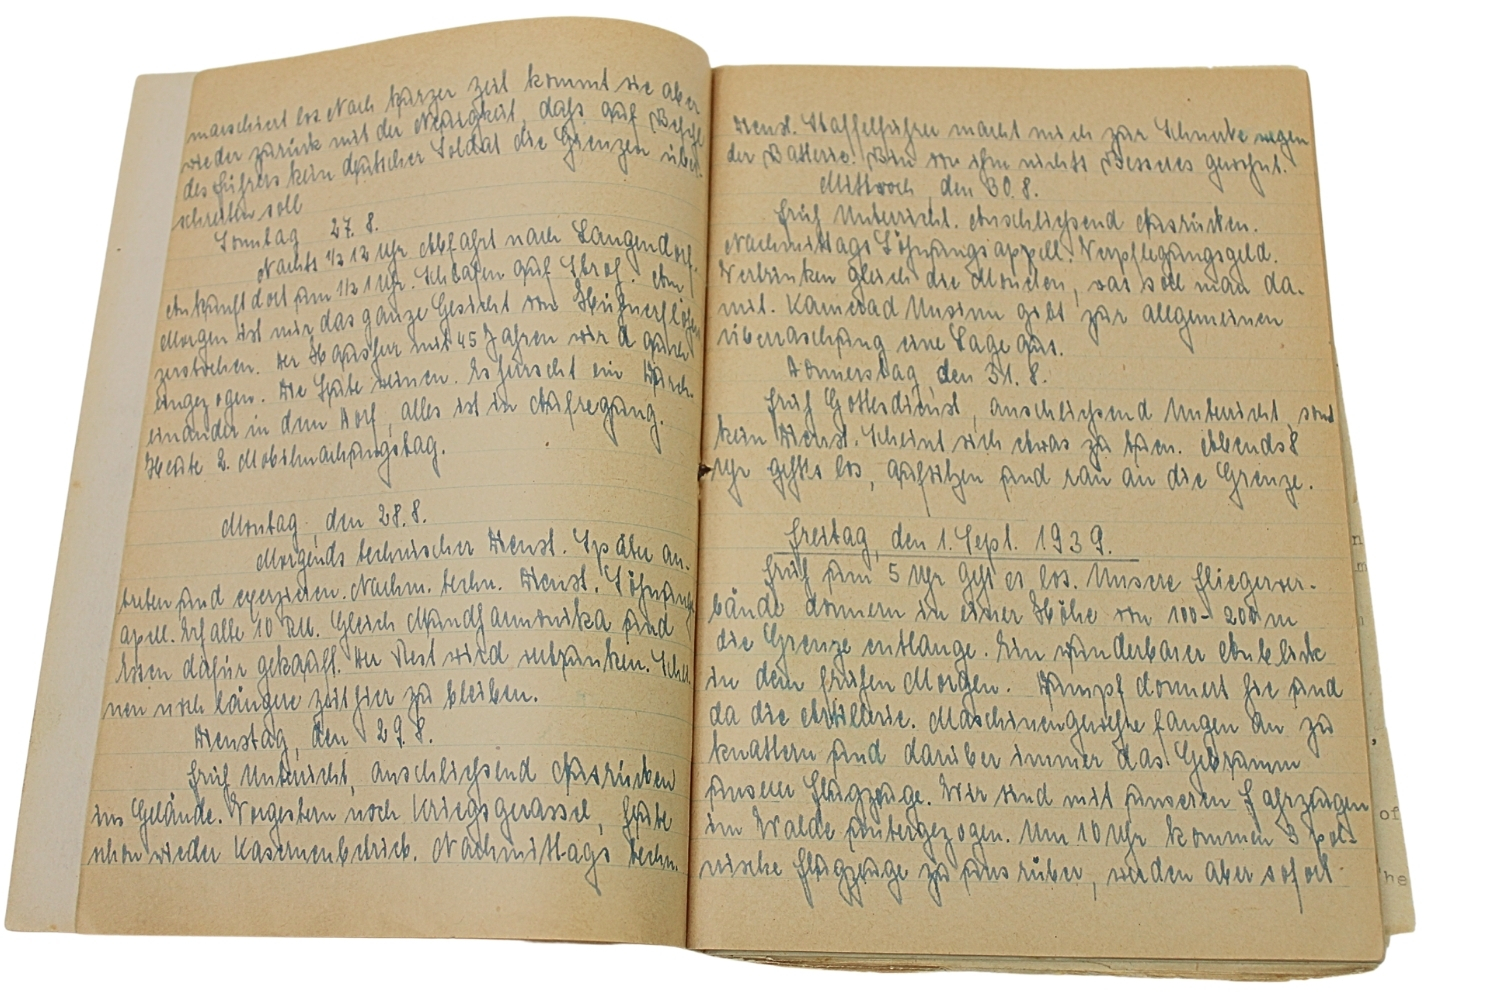 marschiert los. Nach kurzer Zeit kommt sie aber
wieder zurück mit der Neuigkeit, dass auf Befehl
des Führers kein deutscher Soldat die Grenzen über-
schreiten soll
Sonntag 27. 8.
Nachts ½ 12 Uhr Abfahrt nach Langendorf.
Ankunft dort um ½ 1 Uhr. Schlafen auf Stroh. Am
Morgen ist mir das ganze Gesicht von Hühnerflöhen
zerstochen. Der Hausherr mit 45 Jahren wird auch
eingezogen. Die Leute weinen. Es herrscht ein Durch-
einander in dem Dorf, alles ist in Aufregung.
Heute 2. Mobilmachungstag.
Montag, den 28. 8.
Morgends technischer Dienst. Später an-
treten und exerzieren. Nachm. techn. Dienst. Löhnungs
apell. Erhalte 10 RM. Gleich Mundharmonika und
dafür gekauft. Der Rest wird vertrunken.
nen noch längere Zeit hier zu bleiben.
Dienstag, den 29. 8.
Früh Unterricht, anschliessend Ausrücken
ins Gelände. Vorgestern noch Kriegsgerassel, heute
schon wieder Kasernenbetrieb. Nachmittags techn.
Dienst. Staffelführer macht mich zur Schnecke wegen
der Batterie. Bin von ihm nichts Besseres gewohnt.
Mittwoch, den 30. 8.
Früh Unterricht. Anschliessend Ausrücken.
Nachmittags Löhnungsappell. Verpflegungsgeld.
Vertrinken gleich die Moneten, was soll man da-
mit. Kamerad Unsinn gibt zur allgemeinen
überraschung eine Lage aus.
Donnerstag, den 31. 8.
Früh Gottesdienst, anschliessend Unterricht, sonst
kein Dienst. Scheint sich etwas zu tuen. Abends 8
Uhr gehts los, aufsitzen und ran an die Grenze.
Freitag, den 1. Sept. 1939.
Früh um 5 Uhr geht es los. Unsere Fliegerver-
bände donnern in einer Höhe von 100-200 m
die Grenze entlange. Ein wunderbarer Anblick
in dem frühen Morgen. Dumpf donnert hie und
da die Artillerie. Maschinengewehre fangen an zu
knattern und darüber immer das Gebrumm
unserer Flugzeuge. Wir sind mit unseren Fahrzeugen
im Walde untergezogen. Um 10 Uhr kommen 3 pol-
nische Flugzeuge zu uns rüber, werden aber sofort
of
he